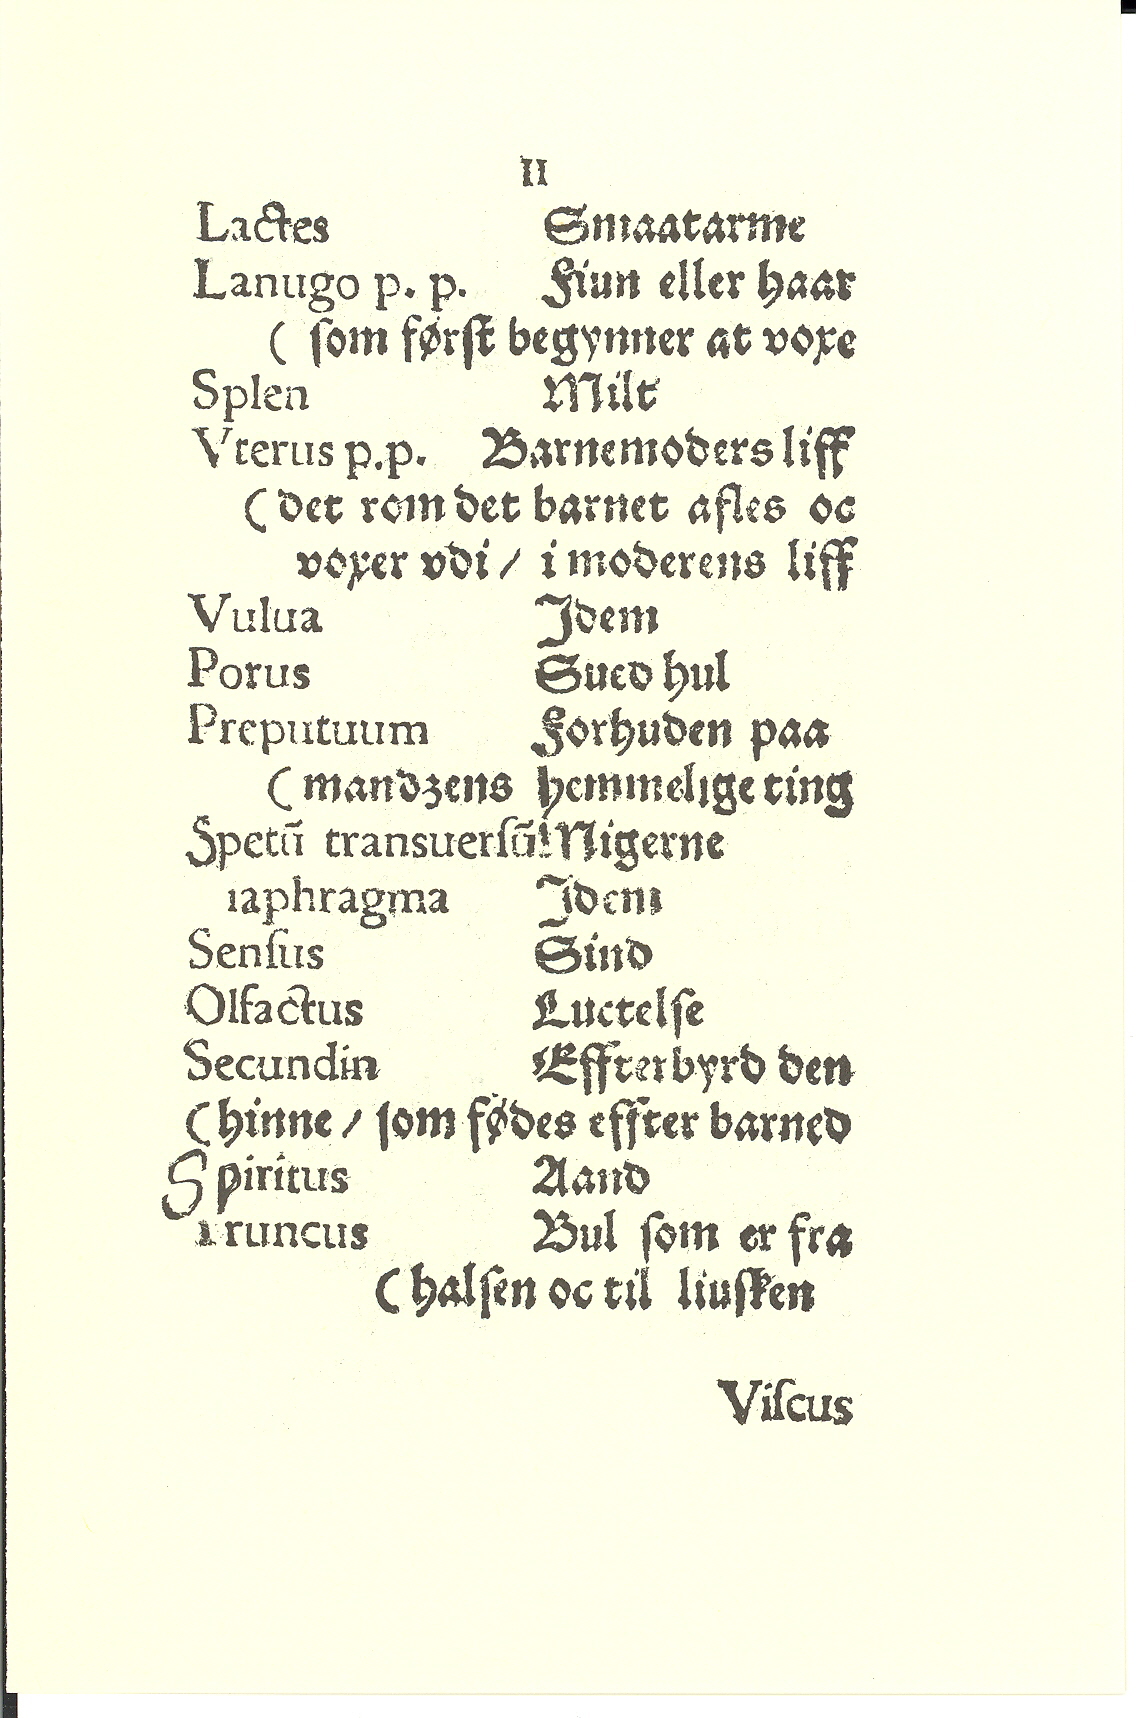 II
Lactes Smaatarme
Lanugo p. p. Fiun eller haar
( som først begynner at voxe
Splen Milt
Vterus p.p. Barnemoders liff
( det rom det barnet afles oc
voxer vdi / i moderens liff
Vulua Idem
Porus Sued hul
Preputuum Forhuden paa
( mandzens hemmelige ting
Spetū transuersū! Nigerne
iaphragma Idem
Sensus Sind
Olfactus Luctelse
Secundin Effterbyrd den
( hinne / som fødes effter barned
Spiritus Aand
Truncus Bul som er fra
( halsen oc til liusken
Viscus